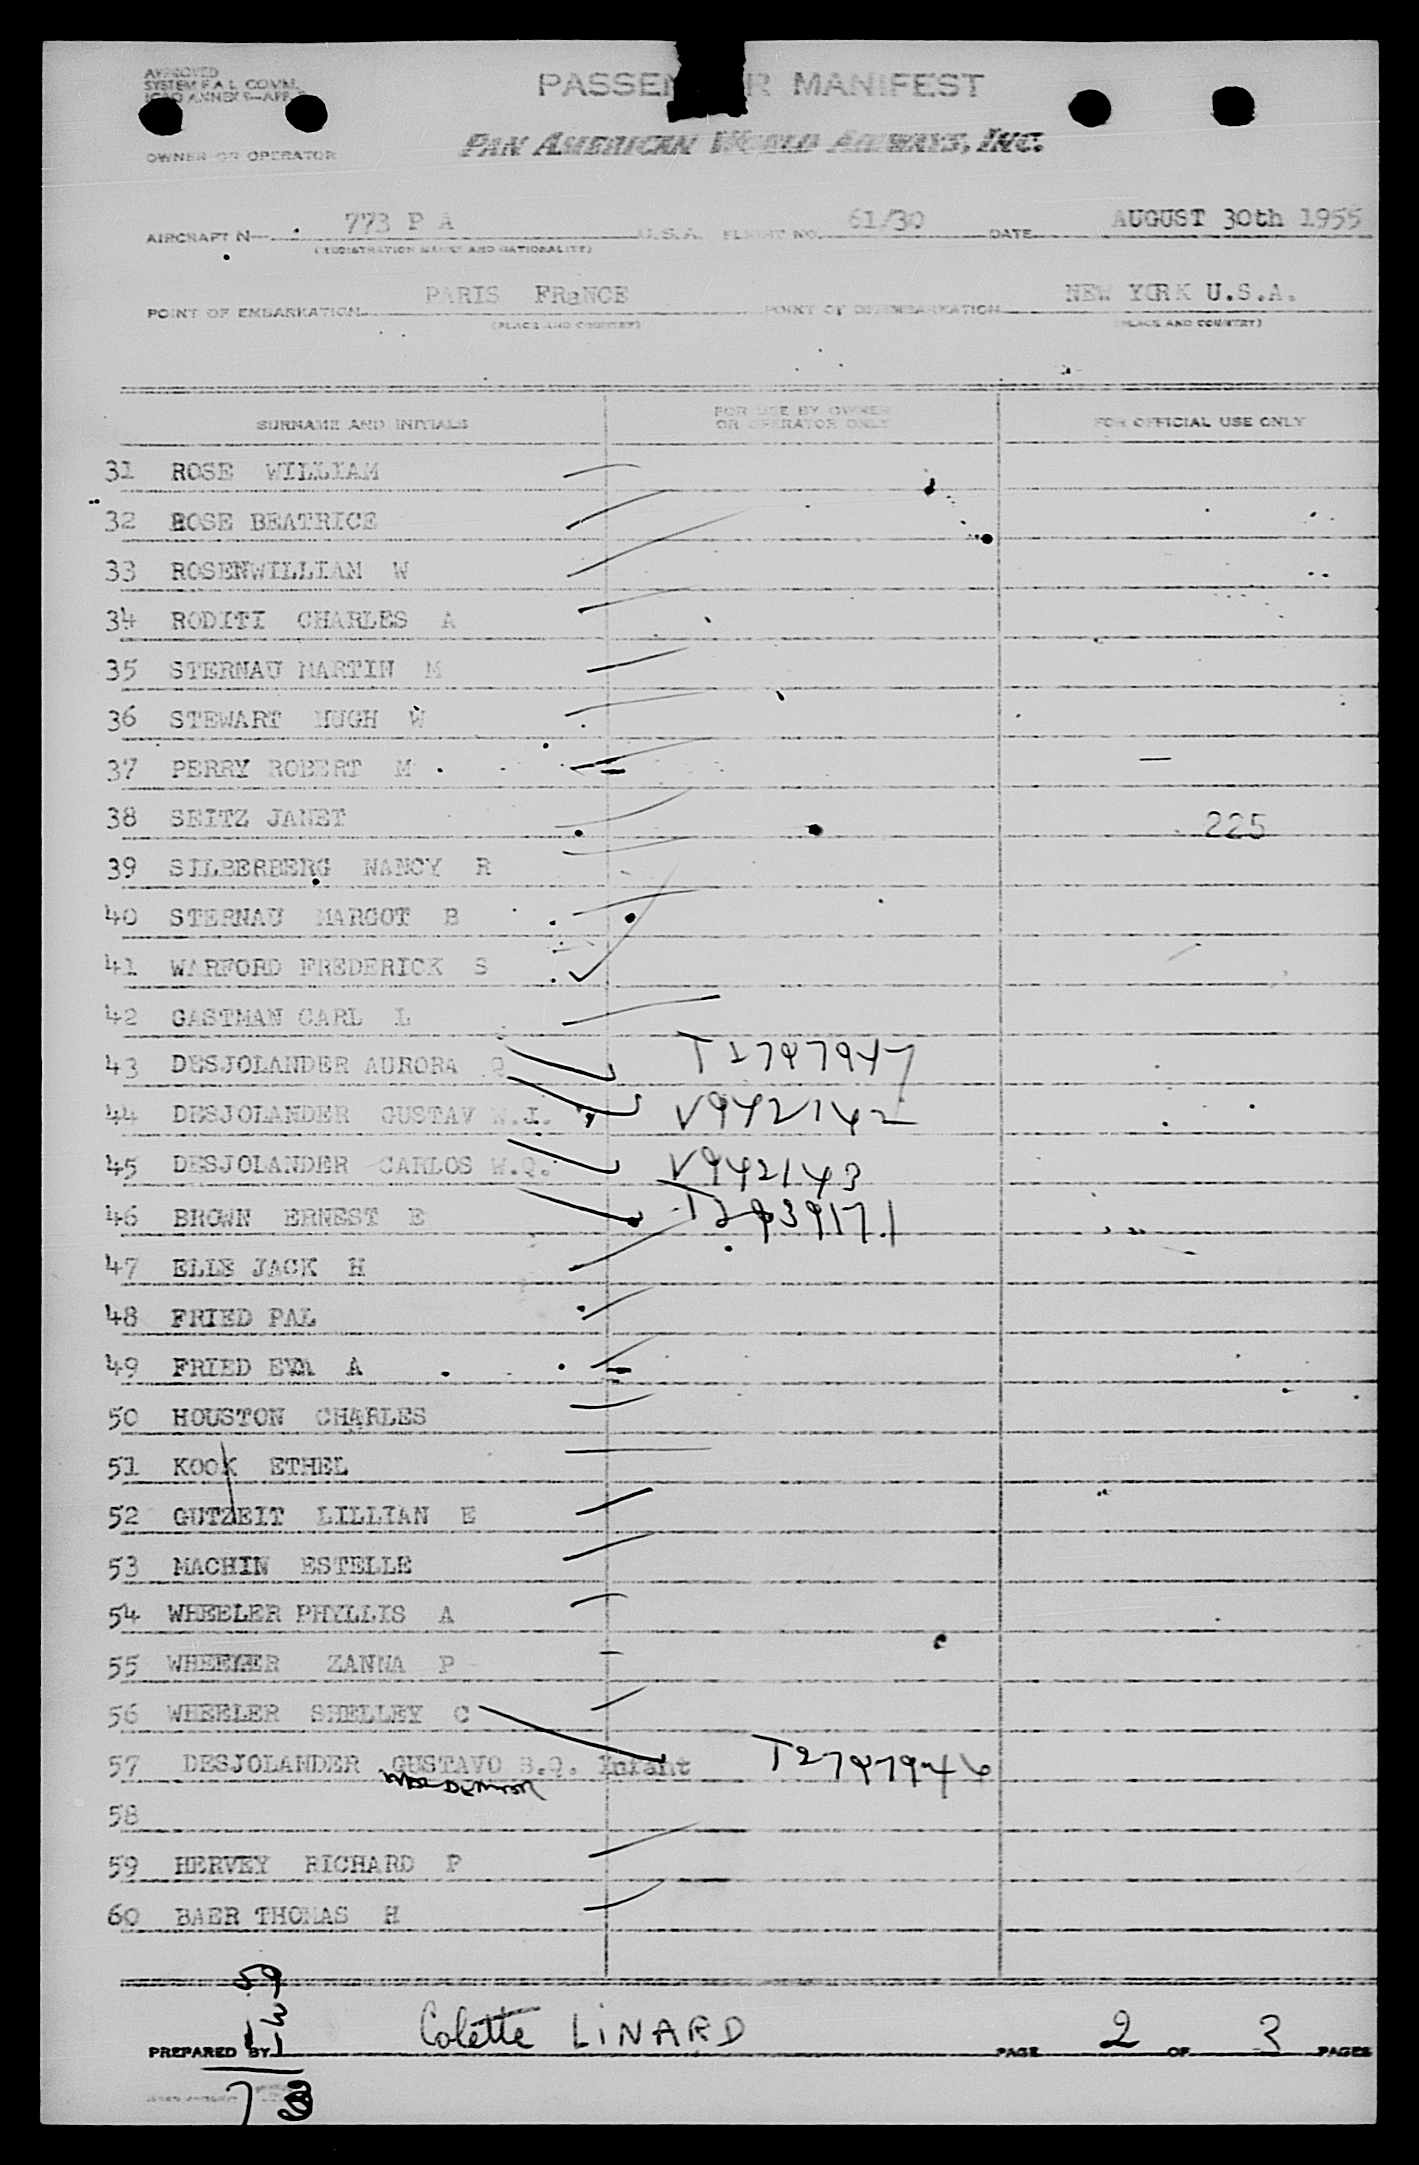 APPROVED
SYSTEM F.A.L. COMM.
ICAO ANNEX 9—APP.
PASSEN R MANIFEST
OWNER OR OPERATOR
PAN AMERICAN WORLD AIRWAYS, INC.
AIRCRAFT N— 773 P A U.S.A. FLIGHT NO. 61/30 DATE AUGUST 30th 1955
(REGISTRATION MARKS AND NATIONALITY)
POINT OF EMBARKATION PARIS FRaNCE POINT OF DISEMBARKATION NEW YORK U.S.A.
(PLACE AND COUNTRY) (PLACE AND COUNTRY)
SURNAME AND INITIALS FOR USE BY OWNER OR OPERATOR ONLY FOR OFFICIAL USE ONLY
31 ROSE WILLIAM
32 ROSE BEATRICE
33 ROSENWILLIAM W
34 RODITI CHARLES A
35 STERNAU MARTIN M
36 STEWART HUGH W
37 PERRY ROBERT M
38 SEITZ JANET 225
39 SILBERBERG NANCY R
40 STERNAU MARGOT B
41 WARFORD FREDERICK S
42 GASTMAN CARL L
43 DESJOLANDER AURORA Q T2787947
44 DESJOLANDER GUSTAV W.J. V942142
45 DESJOLANDER CARLOS W.Q. V942143
46 BROWN ERNEST E
47 ELLE JACK H
48 FRIED PAL
49 FRIED EVA A
50 HOUSTON CHARLES
51 KOOK ETHEL
52 GUTZEIT LILLIAN E
53 MACHIN ESTELLE
54 WHEELER PHYLLIS A
55 WHEELER ZANNA P
56 WHEELER SHELLEY C
57 DESJOLANDER GUSTAVO B.Q. Infant T2787946
58
59 HERVEY RICHARD P
60 BAER THOMAS H
PREPARED BY Colette LINARD PAGE 2 OF 3 PAGES